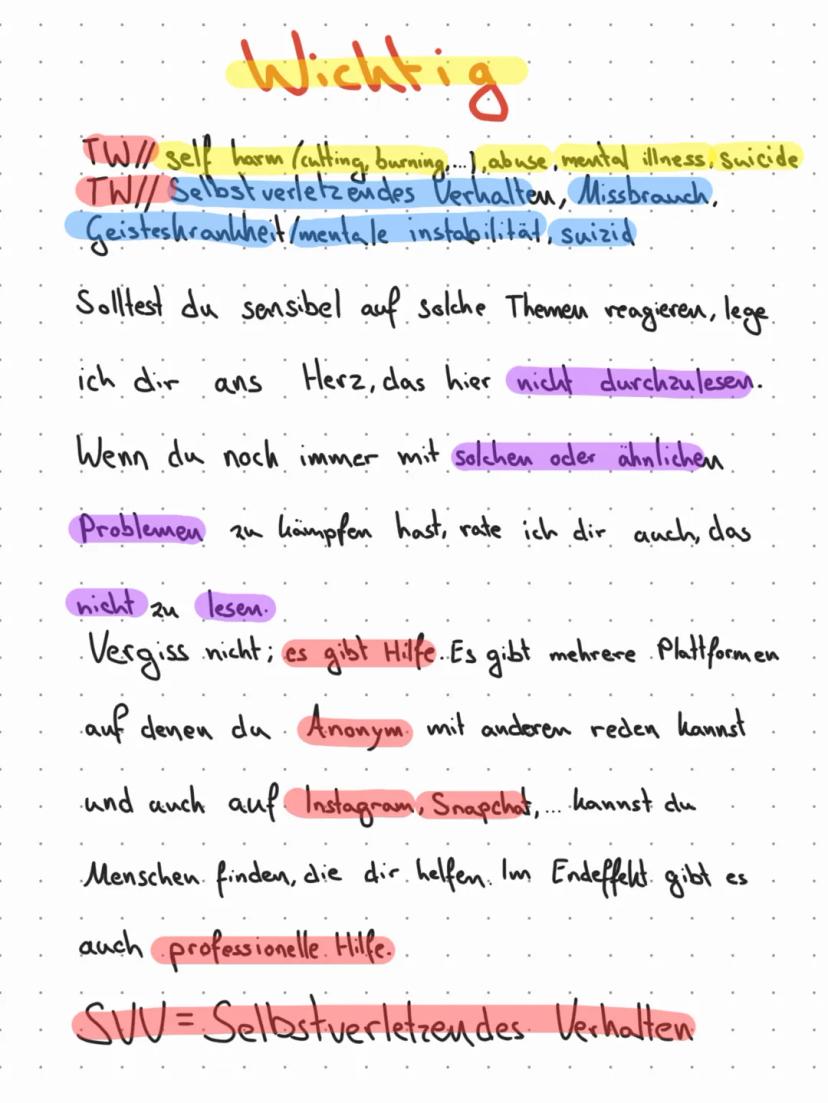 Wichtig
TW// self harm (cutting, burning,...), abuse, mental illness, suicide
TW// Selbstverletzendes Verhalten, Missbrauch,
Geisteskrankheit/mentale instabilität, suizid
Solltest du sensibel auf solche Themen reagieren, lege
ich dir ans Herz, das hier nicht durchzulesen.
Wenn du noch immer mit solchen oder ähnlichen
Problemen zu kämpfen hast, rate ich dir auch, das
nicht zu lesen.
Vergiss nicht; es gibt Hilfe. Es gibt mehrere Plattformen
auf denen du Anonym mit anderen reden kannst
und auch auf Instagram, Snapchat,... kannst du
Menschen finden, die dir helfen. Im Endeffekt gibt es
auch professionelle Hilfe.
SVV = Selbstverletzendes Verhalten